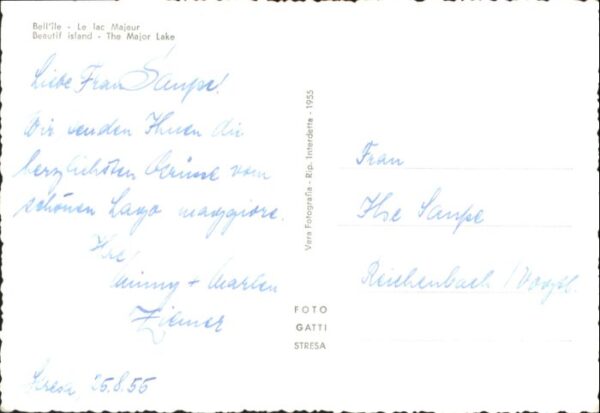 Bell'île - Le lac Majeur
Beautif island - The Major Lake
Liebe Frau Saupe!
Wir senden Ihnen die
herzlichsten Grüsse vom
schönen Lago maggiore.
Ihre
+
Ziemer
Stresa 25.8.55
Vera Fotografia - Rip. Interdetta - 1955
FOTO
GATTI
STRESA
Frau
Ilse Saupe
Reichenbach / Vogtl.